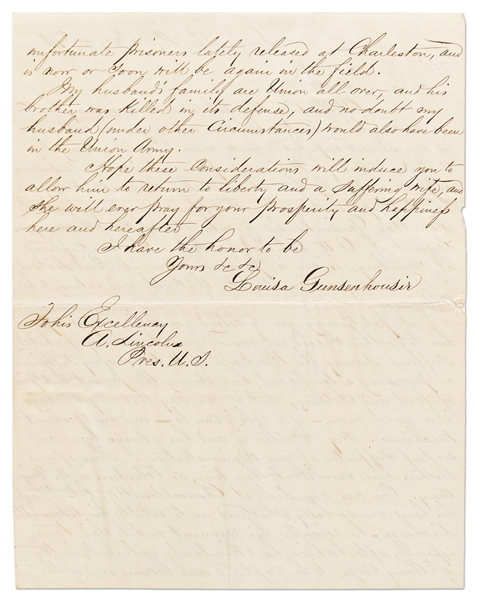 unfortunate prisoners lately released at Charleston, and
is now or soon will be again in the field.
My husband's family are Union all over, and his
brother was killed in its defense, and no doubt my
husband (under other Circumstances) would also have been
in the Union Army.
Hope these Considerations will induce you to
allow him to return to liberty and a suffering wife, and
she will ever pray for your prosperity and happiness
here and hereafter
I have the honor to be
Yours &c &c
Louisa Gunsenhousir
To his Excellency
A. Lincoln
Pres. U.S.